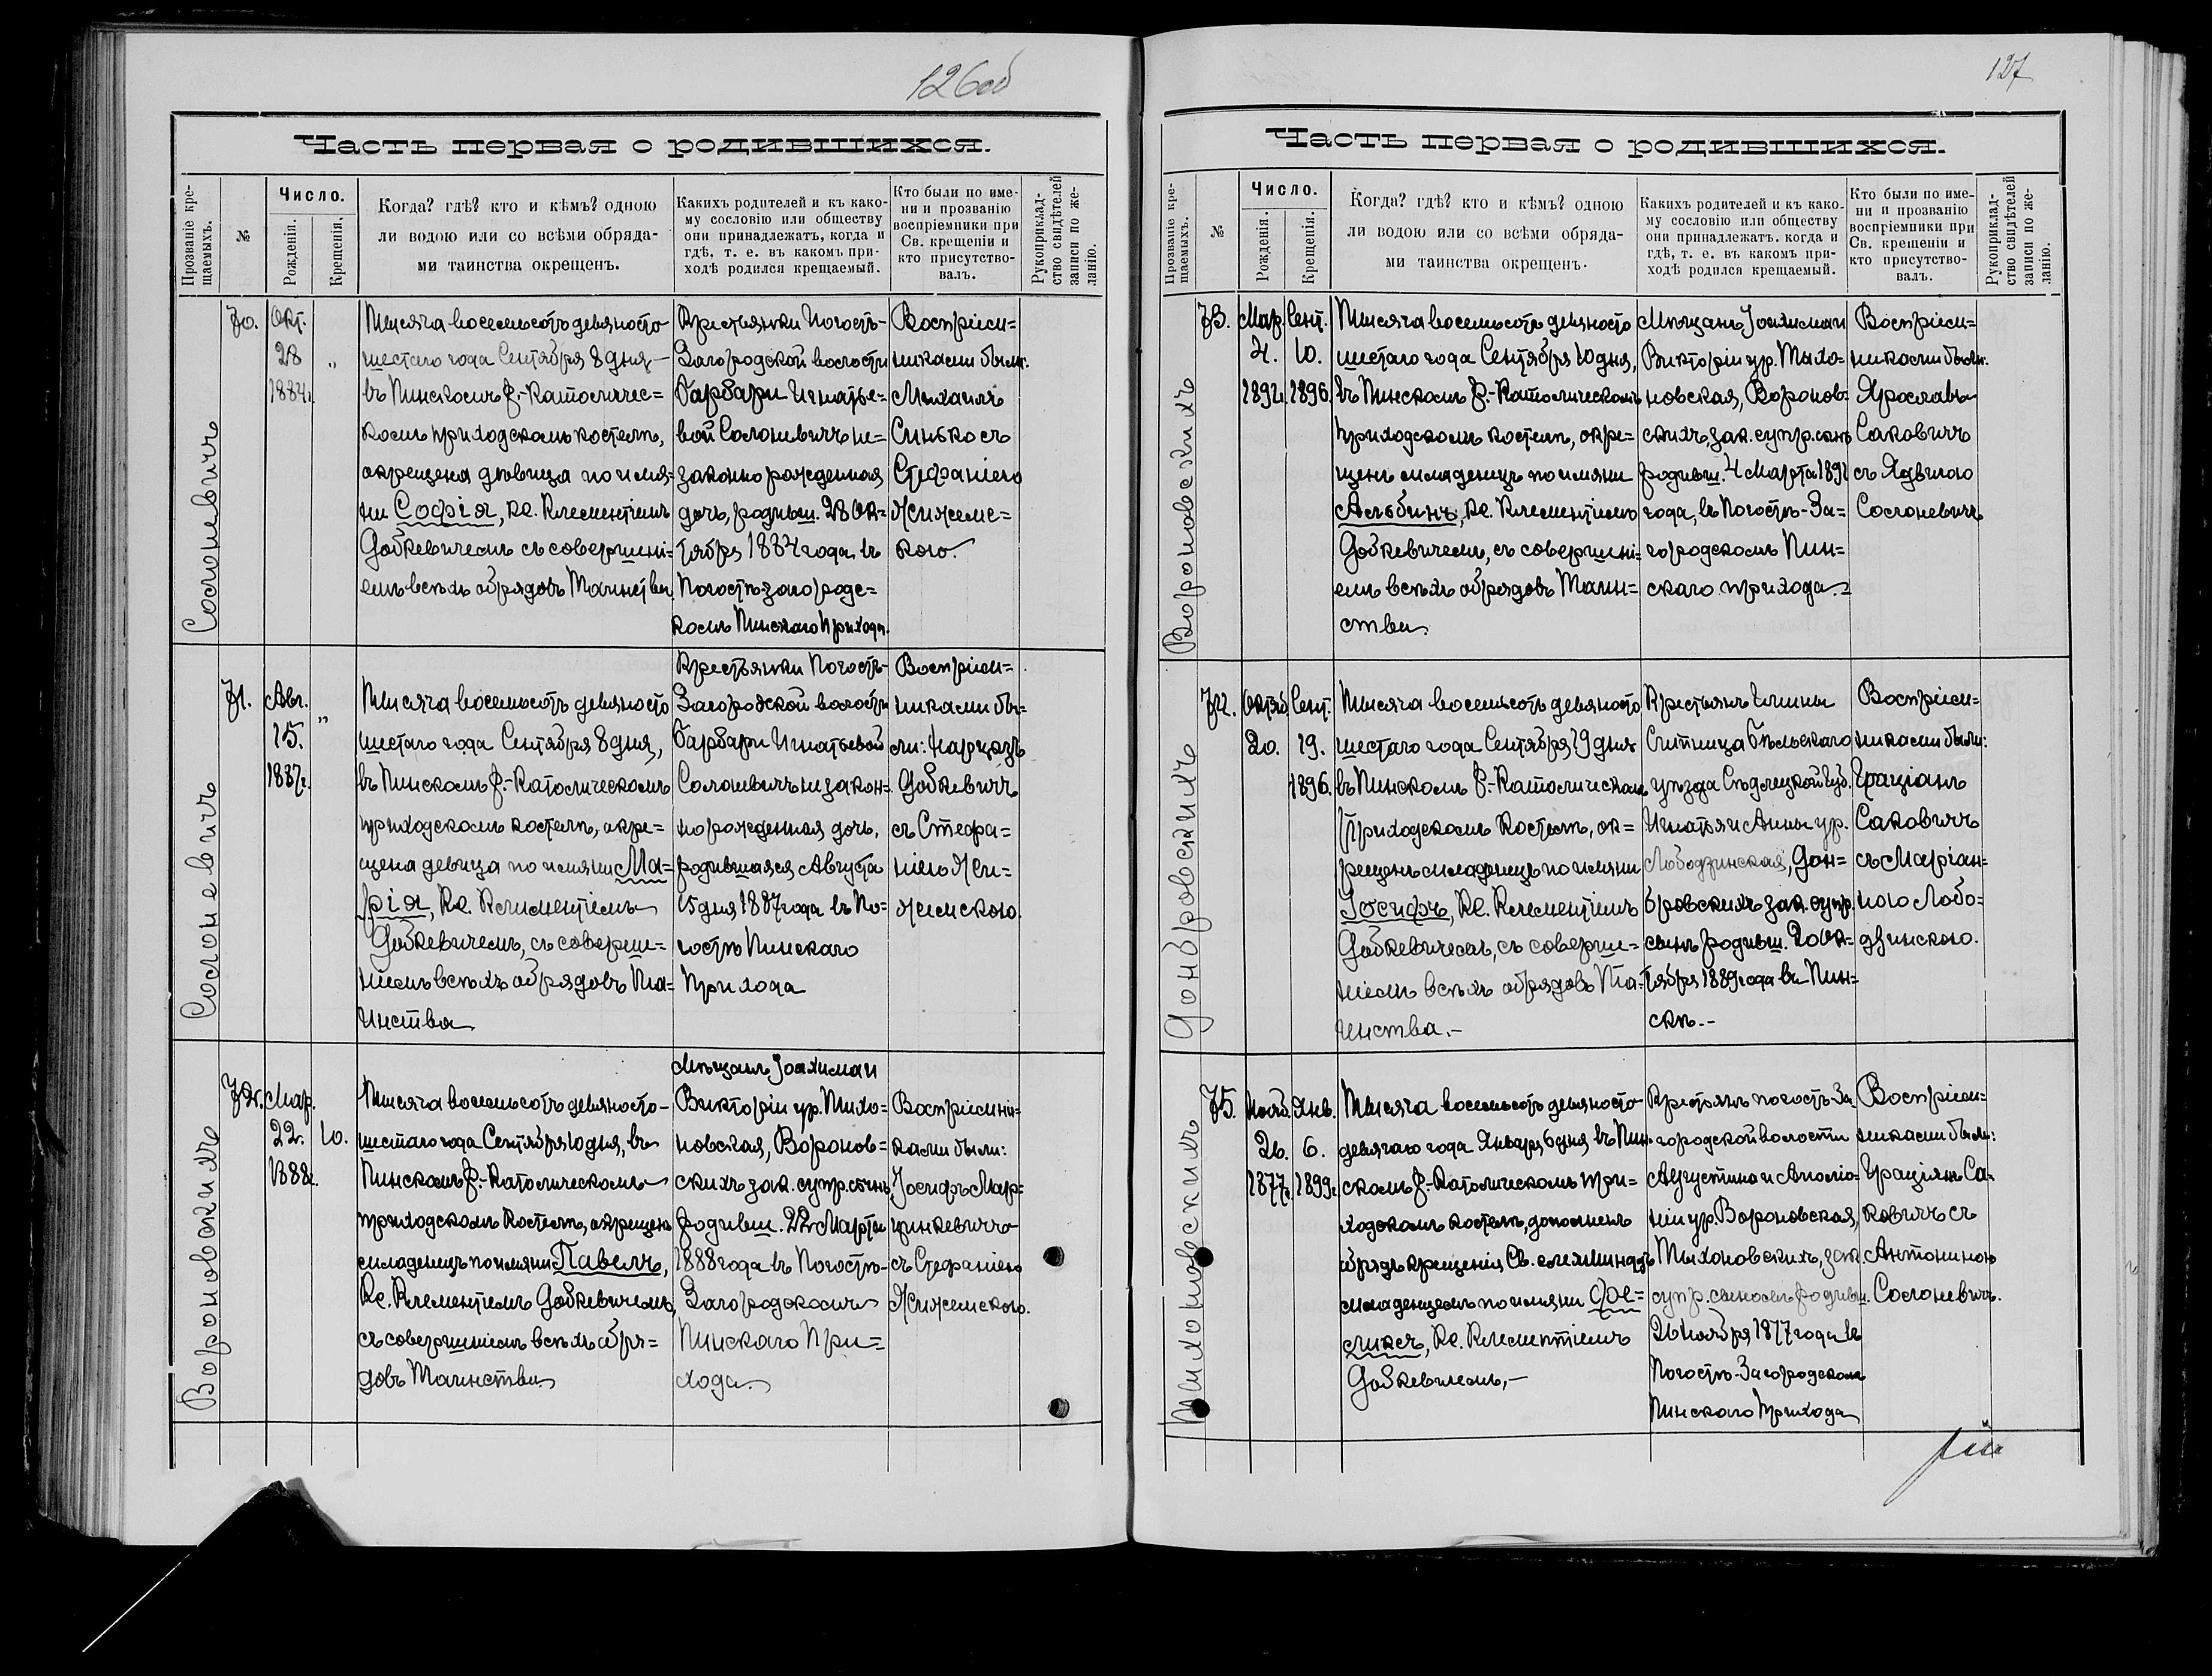 126об
Часть первая о родившихся.
Прозваніе кре-
щаемыхъ.
№
Число.
Рожденія.
Крещенія.
Когда? гдѣ? кто и кѣмъ? одною
ли водою или со всѣми обряда-
ми таинства окрещенъ.
Какихъ родителей и къ како-
му сословію или обществу
они принадлежатъ, когда и
гдѣ, т. е. въ какомъ при-
ходѣ родился крещаемый.
Кто были по име-
ни и прозванію
воспріемники при
Св. крещеніи и
кто присутство-
валъ.
Рукоприклад-
ство свидѣтелей
записи по же-
ланію.
Солоневичъ
70.
Окт.
28
1884г.
„
Тысяча восемьсотъ девяносто
шестаго года Сентября 8 дня
въ Пинскомъ Р.-Католичес=
комъ приходскомъ костелѣ,
окрещена дѣвица по имя=
ни Софія, Кс. Клементіемъ
Довкевичемъ съ совершені=
емъ всѣхъ обрядовъ Таинства
Крестьянки Погостъ-
Загородской волости
Барбары Игнатье=
вой Солоневичъ не=
законно рожденная
дочь, родивш. 28 Ок=
тября 1884 года въ
Погостѣ-загородс=
комъ Пинскаго прихода.
Воспріем=
никами были:
Михаилъ
Синько съ
Стефаніею
Жижемс=
кою.
Солоневичъ
71.
Авг.
15.
1887г.
„
Тысяча восемьсотъ девяносто
шестаго года Сентября 8 дня,
въ Пинскомъ Р.-Католическомъ
приходскомъ костелѣ, окре=
щена девица по имяни Ма=
рія, Кс. Клементіемъ
Довкевичемъ, съ соверше=
ніемъ всѣхъ обрядовъ Та=
инства
Крестьянки Погостъ-
Загородской волости
Барбары Игнатьевой
Солоневичъ незакон=
норожденная дочь,
родившаяся Августа
15 дня 1887 года въ По=
гостѣ Пинскаго
Прихода
Воспріем=
никами бы=
ли: Нарцызъ
Довкевичъ
съ Стефа=
ніею Жи=
жемскою.
Вороновскихъ
72.
Мар.
22.
1888г.
10.
Тысяча восемьсотъ девяносто
шестаго года Сентября 10 дня, въ
Пинскомъ Р.-Католическомъ
приходскомъ костелѣ, окрещенъ
младенецъ по имяни Павелъ,
Кс. Клементіемъ Довкевичемъ,
съ совершеніемъ всѣхъ обря=
довъ Таинства
Мѣщанъ Іоахима и
Викторіи ур. Тыхо=
новская, Воронов=
скихъ зак. супр. сынъ
родивш. 22 Марта
1888 года въ Погостѣ-
Загородскомъ
Пинскаго При=
хода.
Воспріемни=
ками были:
Іосифъ Мар=
цинкевичъ
съ Стефаніею
Жижемскою.
127
Часть первая о родившихся.
Прозваніе кре-
щаемыхъ.
№
Число.
Рожденія.
Крещенія.
Когда? гдѣ? кто и кѣмъ? одною
ли водою или со всѣми обряда-
ми таинства окрещенъ.
Какихъ родителей и къ како-
му сословію или обществу
они принадлежатъ. когда и
гдѣ, т. е. въ какомъ при-
ходѣ родился крещаемый.
Кто были по име-
ни и прозванію
воспріемники при
Св. крещеніи и
кто присутство-
валъ.
Рукоприклад-
ство свидѣтелей
записи по же-
ланію.
Вороновскихъ
73.
Мар.
4.
1892г.
Сент.
10.
1896.
Тысяча восемьсотъ девяносто
шестаго года Сентября 10 дня,
въ Пинскомъ Р.-Католическомъ
приходскомъ костелѣ, окре=
щенъ младенецъ по имяни
Альбинъ, Кс. Клементіемъ
Довкевичемъ, съ совершені=
емъ всѣхъ обрядовъ Таин=
ства.
Мѣщанъ Іоахима и
Викторіи ур. Тыхо=
новская, Воронов=
скихъ, зак. супр. сынъ
родивш. 4 Марта 1892
года, въ Погостѣ-За=
городскомъ Пин=
скаго прихода.
Воспріем=
никами были:
Ярославъ
Саковичъ
съ Ядвигою
Солоневичъ
Домбровскихъ
74.
Октяб
20.
Сент.
19.
1896.
Тысяча восемьсотъ девяносто
шестаго года Сентября 19 дня
въ Пинскомъ Р.-Католическомъ
Приходскомъ Костелѣ, ок=
рещенъ младенецъ по имяни
Іосифъ, Кс. Клементіемъ
Довкевичемъ, съ соверше=
ніемъ всѣхъ обрядовъ Та=
инства.-
Крестьянъ Гмины
Ситница Бѣльскаго
уѣзда Сѣдлецкой Губ.
Игнатья и Анны ур.
Лободзинская, Дом=
бровскихъ зак. супр.
сынъ родивш. 20 Ок=
тября 1889 года въ Пин=
скѣ.-
Воспріем=
никами были:
Граціанъ
Саковичъ
съ Маріан=
ною Лобо=
дзинскою.
Тыхоновскихъ
75.
Нояб.
26.
1877г.
Янв.
6.
1899г.
Тысяча восемьсотъ девяносто
девятаго года Января 6 дня въ Пин=
скомъ Р.-Католическомъ При=
ходскомъ костелѣ, дополненъ
обрядъ крещенія Св. елея надъ
младенцемъ по имяни Фе=
ликсъ, Кс. Клементіемъ
Довкевичемъ,-
Крестьянъ погостъ-За=
городской волости
Августина и Аполо=
ніи ур. Вороновская,
Тыхоновскихъ, зак.
супр. сыномъ родивш.
26 Ноября 1877 года въ
Погостѣ-Загородскомъ
Пинскаго Прихода
Воспріем=
никами были:
Граціянъ Са=
ковичъ съ
Антониною
Солоневичъ.